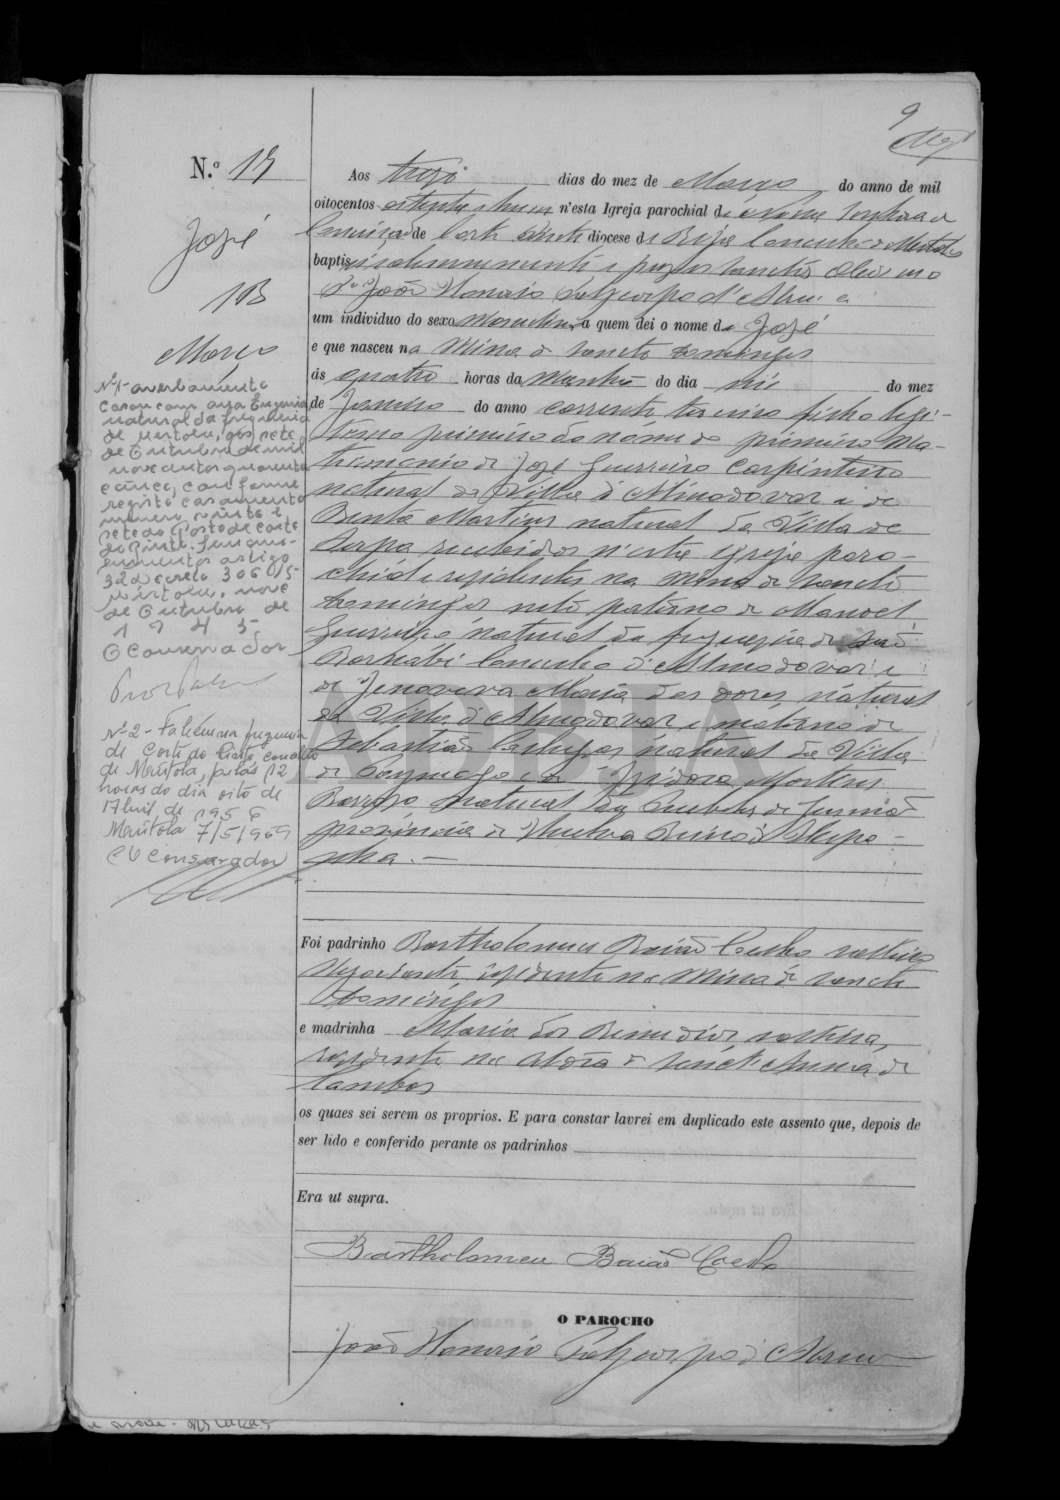 9
N.º 17
José
13
Março
Aos treze dias do mez de Março do anno de mil
oitocentos oitenta e n'esta Igreja parochial de Nossa Senhora da
Conceição de Corte do Pinto diocese de Beja Concelho de Mertola
baptisei solemnemente e puz os Sanctos Oleos eu o
Pe João Honorio Polycarpo d'Abreu a
um individuo do sexo Masculino a quem dei o nome de José
e que nasceu na Mina de Sancto Domingos
ás quatro horas da Manhã do dia do mez
de Janeiro do anno corrente terceiro filho legi-
timo primeiro do nome do primeiro Ma-
trimonio de José Guerreiro Carpinteiro
natural da Villa d'Almodovar e de
Benta Martins natural da Villa de
Serpa recebidos n'esta Igreja paro-
chial e residentes na Mina de Sancto
Domingos neto paterno de Manoel
Guerreiro natural da freguezia de São
Barnabé Concelho d'Almodovar e
de Jenoveva Maria das Dores natural
da Villa d'Almodovar e materno de
Sebastião natural da Villa
de e de Izidora Martins
natural da Puebla de Gusmão
provincia de Huelva Reino d'Hespa-
nha.—
Foi padrinho Bartholomeu Baião Coelho solteiro
Negociante residente na Mina de Sancto
Domingos
e madrinha Maria dos Remedios solteira,
residente na Aldeia de Sanct'Anna de
Cambas
os quaes sei serem os proprios. E para constar lavrei em duplicado este assento que, depois de
ser lido e conferido perante os padrinhos
Era ut supra.
Bartholomeu Baião Coelho
O PAROCHO
João Honorio Polycarpo d'Abreu
Nº 1 - averbamento
Casou com Ana Eugenia,
natural da freguesia
de Mertola, aos sete
de Outubro de mil
novecentos quarenta
e cinco, conforme
registo casamento
numero vinte e
sete do Posto de Corte
do Pinto.
artigo
322
Mertola, nove
de Outubro de
1945
O Conservador
Nº 2 - Faleceu na freguesia
de Corte do Pinto, concelho
de Mértola, pelas 12
horas do dia oito de
Abril de 1956
Mértola 7/5/969
O Conservador
ADBJA